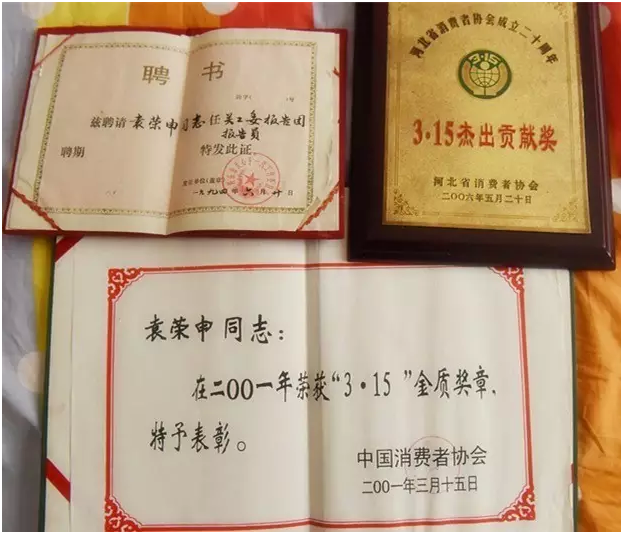 聘 书
兹聘请袁荣申同志任关工委报告团
报告员
聘期
特发此证
一九九四年六月十日
河北省消费者协会成立二十周年
3·15
3·15杰出贡献奖
河北省消费者协会
二〇〇六年五月二十日
袁荣申同志：
在二〇〇一年荣获“3·15”金质奖章、
特予表彰。
中国消费者协会
二〇〇一年三月十五日